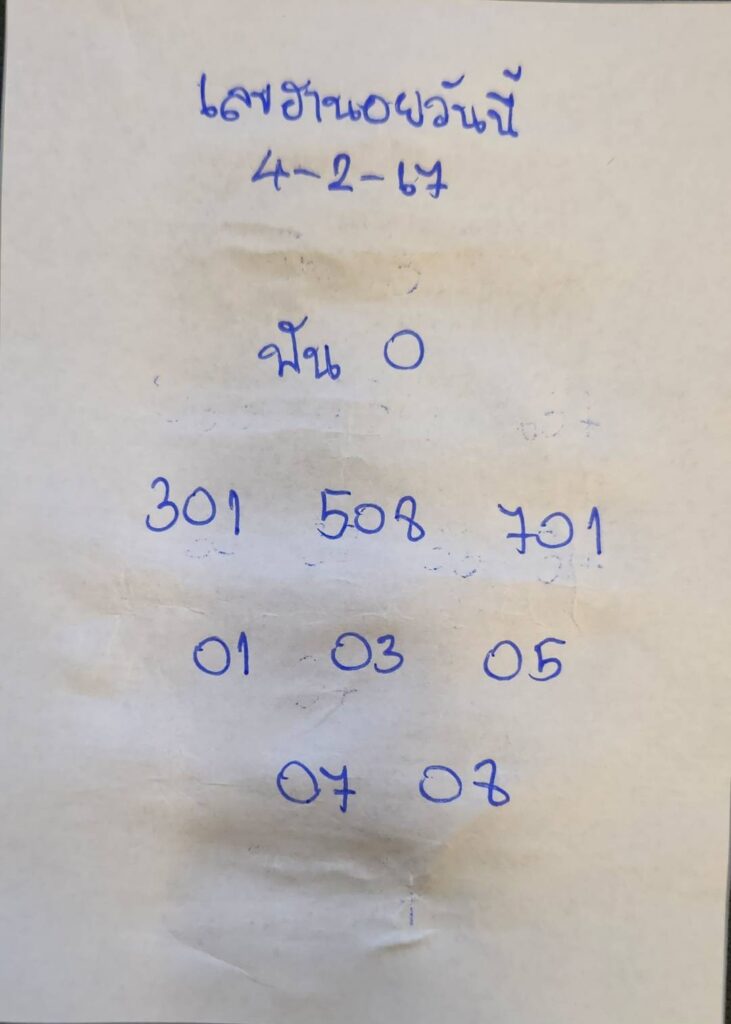 เลขฮานอยวันนี้
4-2-67
ฟัน 0
301 508 701
01 03 05
07 08